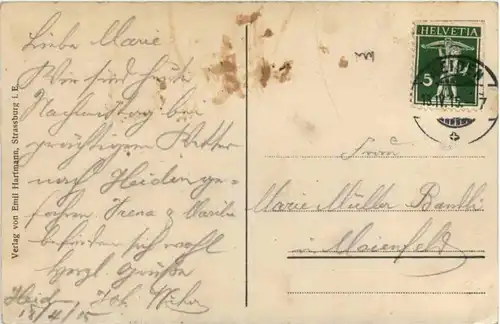 Liebe Marie
Wir sind heute
Nachmittag bei
prächtigem Wetter
nach Heiden ge-
fahren. Irena &
befinden sich wohl
Herzl. Grüße
Heid. Joh.
15/4/15
Verlag von Emil Hartmann, Strassburg i. E.
HELVETIA
5
Frau
Marie Müller Bantli
in Maienfeld